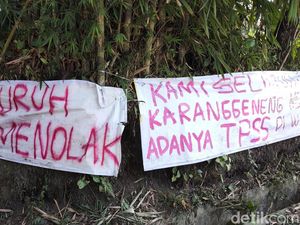 URUH
MENOLAK
KAMI SEL
KARANGGENENG
ADANYA TPSS DI W
detikcom